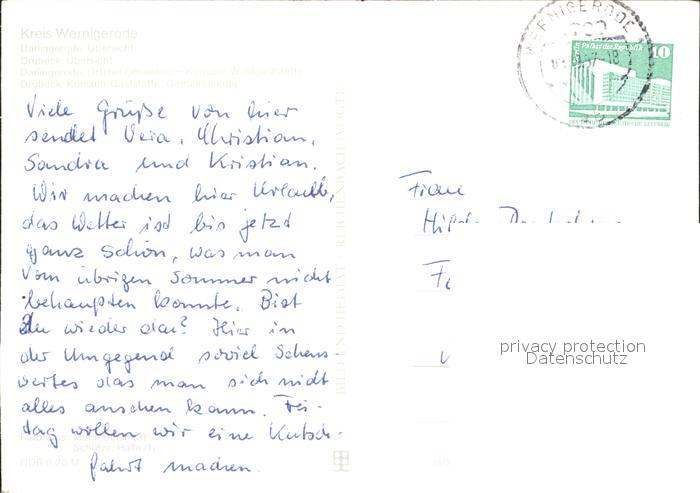 Kreis Wernigerode
Darlingerode, Übersicht
Drübeck, Übersicht
Darlingerode, Ortsteil Öhrenfeld - Konsum Waldgaststätte
Drübeck, Konsum-Gaststätte
WERNIGERODE
Palast der Republik
10
Viele Grüße von hier
sendet Vera, Christian,
Sandra und Kristian.
Wir machen hier Urlaub,
das Wetter ist bis jetzt
ganz schön, was man
vom übrigen Sommer nicht
behaupten konnte. Bist
du wieder da? Hier in
der Umgegend soviel Sehens-
wertes das man sich nicht
alles ansehen kann. Frei-
tag wollen wir eine Kutsch-
fahrt machen.
Frau
BILD UND HEIMAT · REICHENBACH (VOGTL)
DDR 0,20 M
privacy protection
Datenschutz